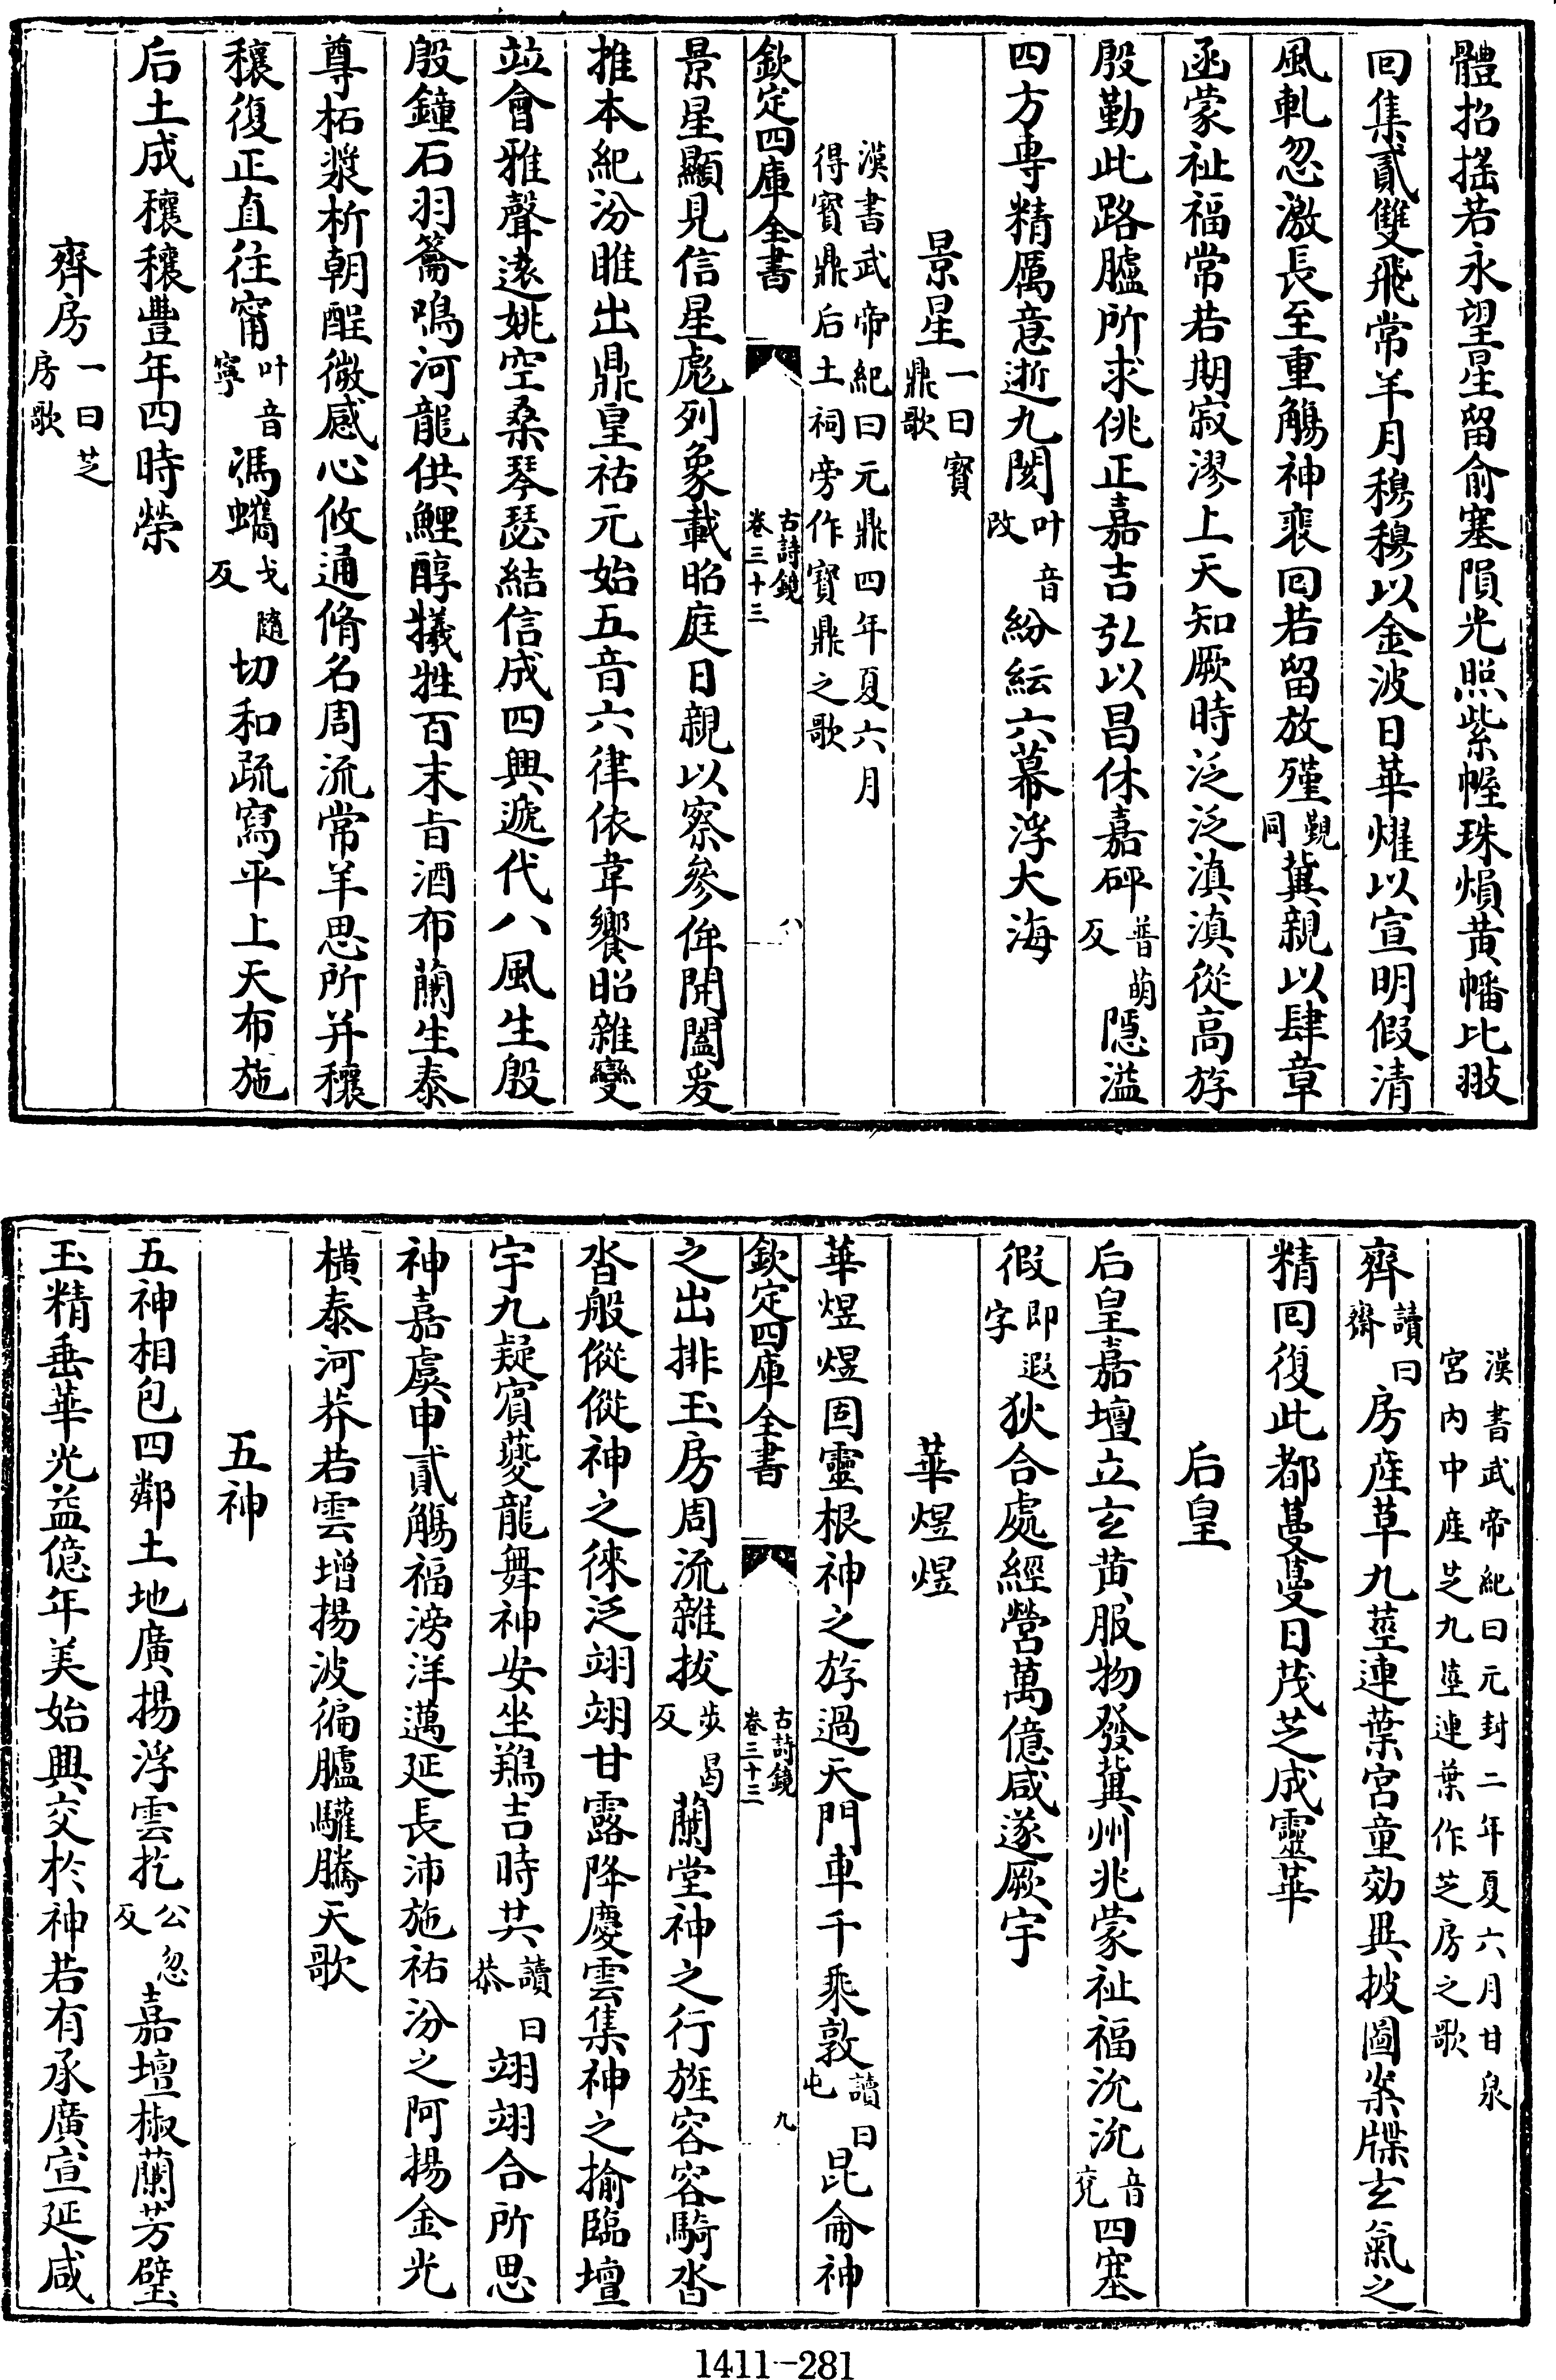 體招搖若永望星留俞塞隕光照紫幄珠熉黃幡比翄
回集貳雙飛常羊月穆穆以金波日華燿以宣明假清
風軋忽激長至重觴神裵回若留放殣覲同冀親以肆章
函蒙祉福常若期寂漻上天知厥時泛泛滇滇從高斿
殷勤此路臚所求佻正嘉吉弘以昌休嘉砰普萌反隱溢
四方專精厲意逝九閡叶音改紛紜六幕浮大海
景星一曰寶鼎歌
漢書武帝紀曰元鼎四年夏六月
得寶鼎后土祠旁作寶鼎之歌
欽定四庫全書 古詩鏡卷三十三 八
景星顯見信星彪列象載昭庭日親以察參侔開闔爰
推本紀汾脽出鼎皇祜元始五音六律依韋饗昭雜變
竝會雅聲遠姚空桑琴瑟結信成四興遞代八風生殷
殷鐘石羽籥鳴河龍供鯉醇犧牲百末旨酒布蘭生泰
尊柘漿析朝酲微感心攸通脩名周流常羊思所并穰
穰復正直往甯叶音寧馮蠵戈隨反切和疏寫平上天布施
后土成穰穰豐年四時榮
齊房一曰芝房歌
漢書武帝紀曰元封二年夏六月甘泉
宮內中産芝九莖連葉作芝房之歌
齊讀曰齋房産草九莖連葉宮童効異披圖案牒玄氣之
精回復此都蔓蔓日茂芝成靈華
后皇
后皇嘉壇立玄黃服物發冀州兆蒙祉福沇沇音兖四塞
徦即遐字狄合處經營萬億咸遂厥宇
華煜煜
華煜煜固靈根神之斿過天門車千乘敦讀曰屯昆侖神
欽定四庫全書 古詩鏡卷三十三 九
之出排玉房周流雜拔步曷反蘭堂神之行旌容容騎沓
沓般傱傱神之徠泛翊翊甘露降慶雲集神之揄臨壇
宇九疑賓夔龍舞神安坐鵷吉時共讀曰恭翊翊合所思
神嘉虞申貳觴福滂洋邁延長沛施祐汾之阿揚金光
橫泰河莽若雲增揚波徧臚驩騰天歌
五神
五神相包四鄰土地廣揚浮雲扢公忽反嘉壇椒蘭芳璧
玉精垂華光益億年美始興交於神若有承廣宣延咸
1411-281